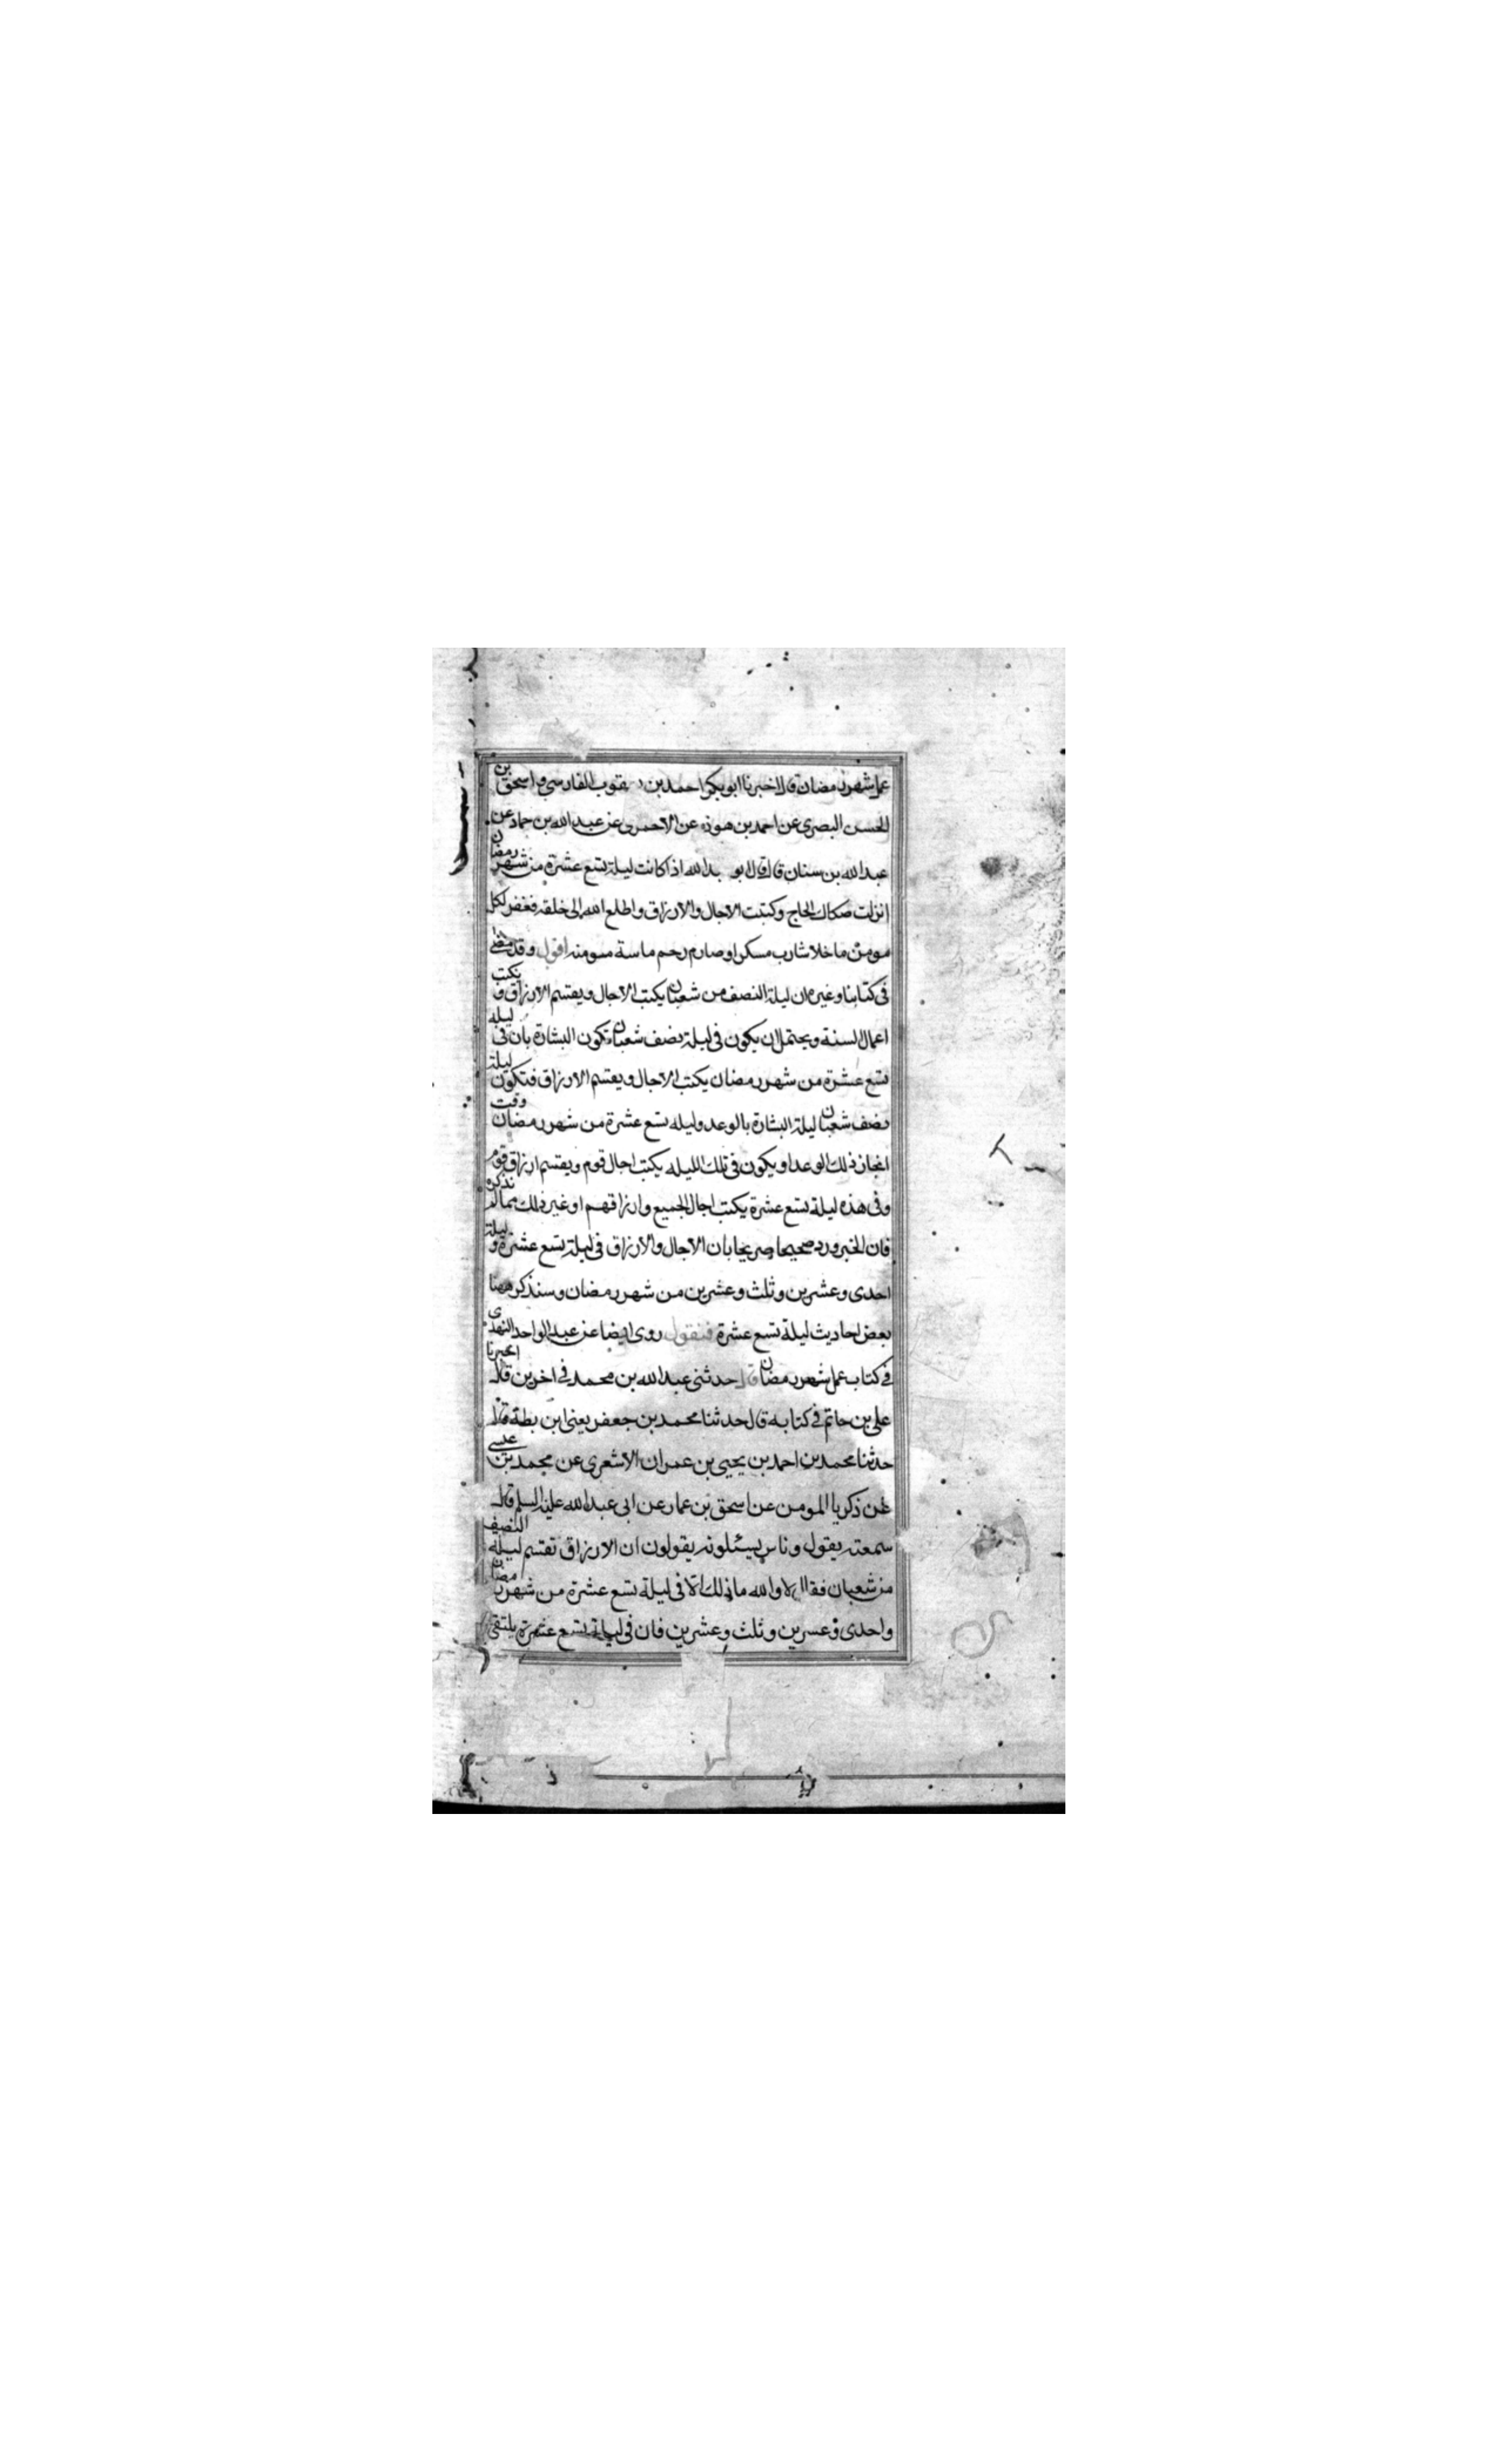 عمل شهر رمضان قال اخبرنا ابو بكر احمد بن يعقوب الفارسي و اسحق بن
الحسن البصرى عن احمد بن هوذه عن الاحمرى عن عبد الله بن حماد عن
عبد الله بن سنان قال قال ابو عبد الله اذا كانت ليلة تسع عشرة من شهر رمضان
انزلت صكاك الحاج وكتبت الاجال والارزاق واطلع الله الى خلقه فغفر لكل
مومن ما خلا شارب مسكر او صارم رحم ماسة مومنه اقول وقد مضى
فى كتابنا وغيره ان ليلة النصف من شعبان يكتب الاجال ويقتسم الارزاق و يكتب
اعمال السنة ويحتمل ان يكون فى ليلة نصف شعبان تكون البشارة بان فى ليله
تسع عشرة من شهر رمضان يكتب الاجال ويقتسم الارزاق فتكون ليلة
نصف شعبان ليلة البشارة بالوعد وليله تسع عشرة من شهر رمضان وقت
انجاز ذلك الوعد او يكون فى تلك الليله يكتب اجال قوم ويقتسم ارزاق قوم
وفى هذه ليلة تسع عشرة يكتب اجال الجميع وارزاقهم او غير ذلك مما لم نذكره
فان الخبر ورد صحيحا صريحا بان الاجال والارزاق فى ليلة تسع عشرة و ليلة
احدى وعشرين وثلث وعشرين من شهر رمضان وسنذكر ههنا
بعض احاديث ليلة تسع عشرة فنقول روى ايضا عن عبد الواحد النهدى
فى كتاب عمل شهر رمضان قال حدثنى عبد الله بن محمد فى اخرين قال اخبرنا
على بن حاتم فى كتابه قال حدثنا محمد بن جعفر يعنى ابن بطة قال
حدثنا محمد بن احمد بن يحيى بن عمران الاشعرى عن محمد بن عيسى
عن زكريا المومن عن اسحق بن عمار عن ابى عبد الله عليه السلم قال
سمعته يقول وناس يسئلونه يقولون ان الارزاق تقتسم ليله النصف
من شعبان فقال لا والله ما ذلك الا فى ليلة تسع عشرة من شهر رمضان
واحدى وعسرين وثلث وعشرين فان فى ليلة تسع عشرة يلتقى